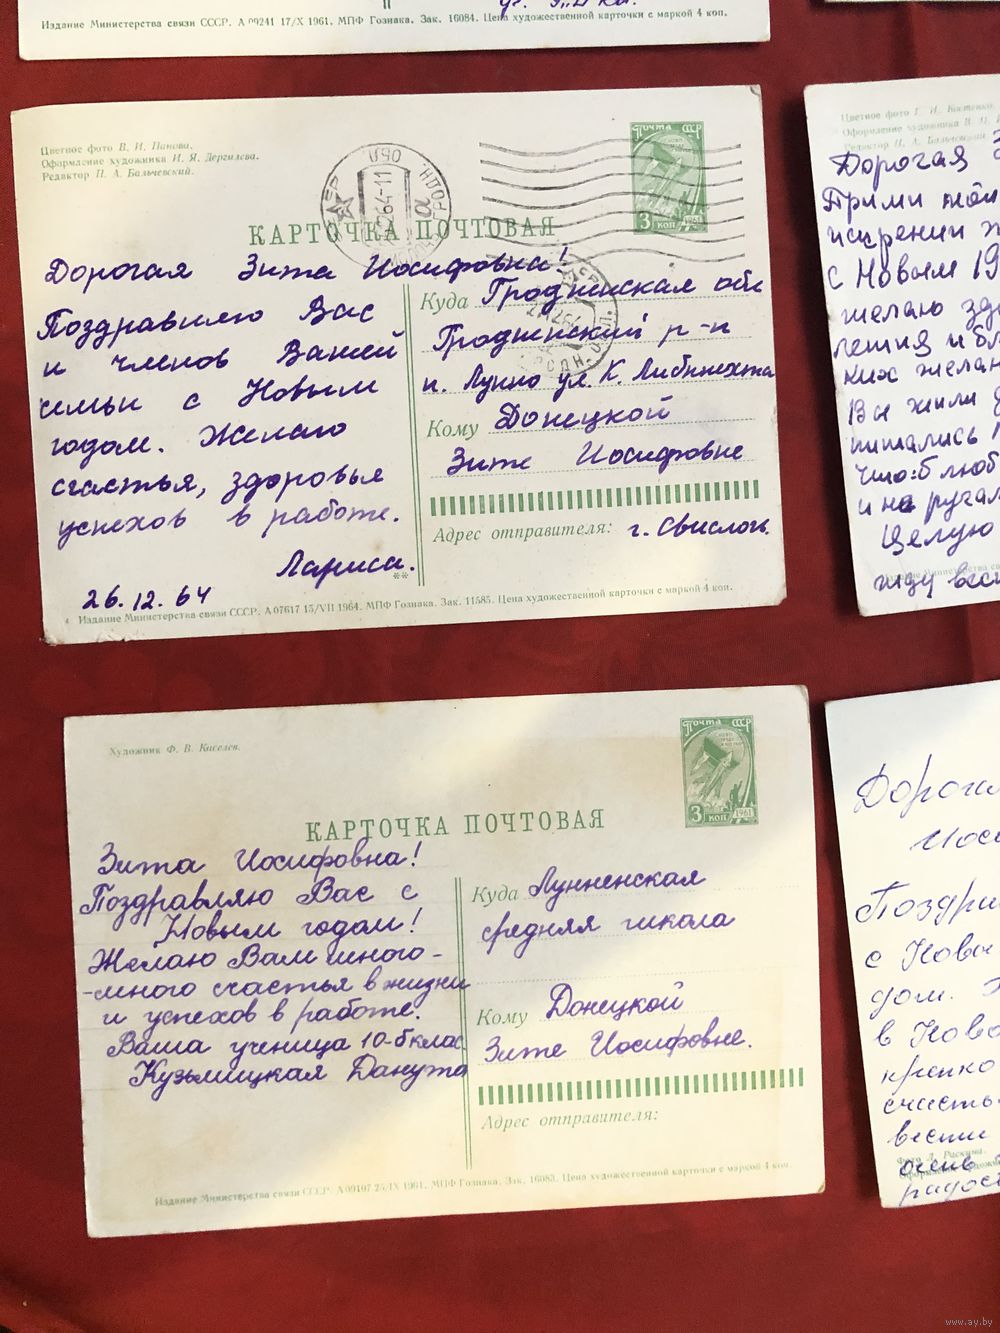 Издание Министерства связи СССР. А 09241 17/X 1961. МПФ Гознака. Зак. 16084. Цена художественной карточки с маркой 4 коп.
Цветное фото В. И. Панова.
Оформление художника И. Я. Дергилева.
Редактор П. А. Бальчевский.
ПОЧТА СССР
3 КОП
1961
КАРТОЧКА ПОЧТОВАЯ
Дорогая Зита Иосифовна!
Поздравляю Вас
и членов Вашей
семьи с Новым
годом. Желаю
счастья, здоровья
успехов в работе.
Лариса.
26.12.64
Куда Гродненская обл
Гродненский р-н
п. Лунно ул. К. Либкнехта
Кому Донецкой
Зите Иосифовне
Адрес отправителя: г. Свислочь.
Издание Министерства связи СССР. А 07617 15/VII 1964. МПФ Гознака. Зак. 11585. Цена художественной карточки с маркой 4 коп.
Цветное фото Г. И. Костенко.
Оформление художника В. П.
Редактор П. А. Бальчевский
Дорогая
Прими мои
искрении
с Новым 19
желаю
Вы жили
Целую
жду
Художник Ф. В. Киселев.
ПОЧТА СССР
3 КОП
1961
КАРТОЧКА ПОЧТОВАЯ
Зита Иосифовна!
Поздравляю Вас с
Новым годом!
Желаю Вам много-
-много счастья в жизни
и успехов в работе.
Ваша ученица 10-б клас
Кузьмицкая Данута
Куда Лунненская
средняя школа
Кому Донецкой
Зите Иосифовне.
Адрес отправителя:
Издание Министерства связи СССР. А 09197 25/IX 1961. МПФ Гознака. Зак. 16083. Цена художественной карточки с маркой 4 коп.
с Новы
дом.
в Ново
крепко
счасть
вести
Фото Л. Раскина.
очень
радос
www.ay.by